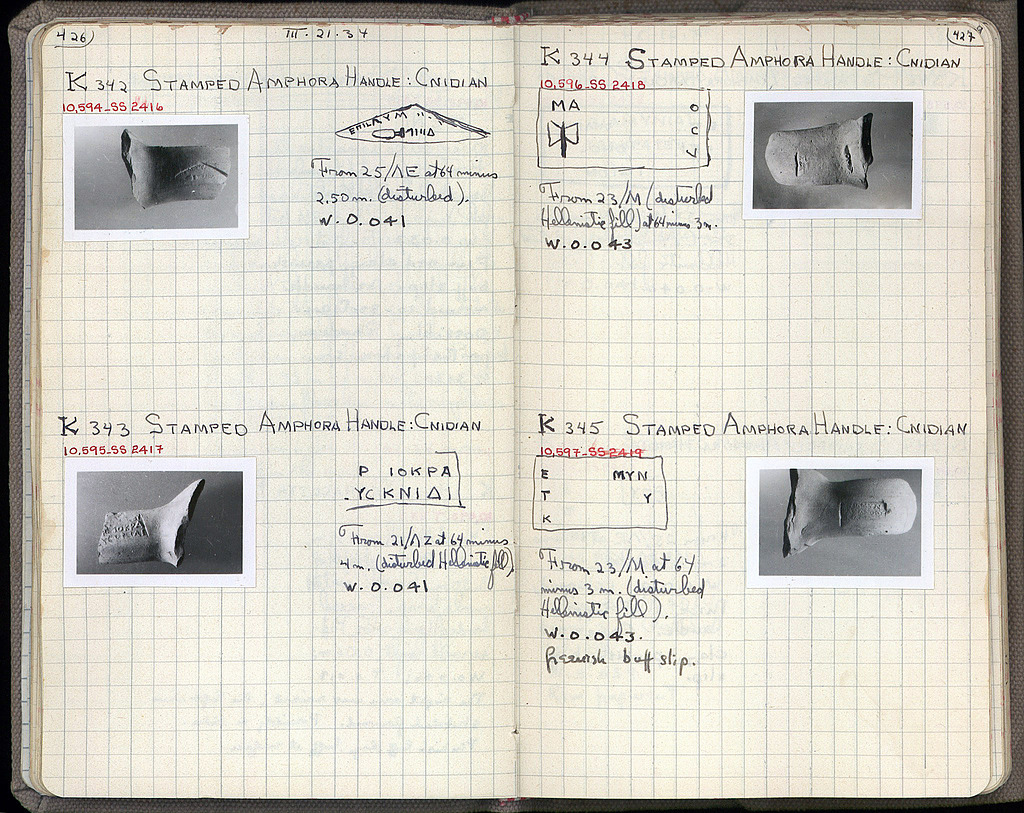 426
III-21-34
K 342 STAMPED AMPHORA HANDLE: CNIDIAN
10,594-SS 2416
From 25/ΛE at 64 minus
2.50 m. (disturbed).
W.O.041
K 343 STAMPED AMPHORA HANDLE: CNIDIAN
10,595-SS 2417
P ΙΟΚΡΑ
.YC ΚΝΙΔΙ
From 21/ΛZ at 64 minus
4 m. (disturbed Hellenistic fill)
W.O.041
427
K 344 STAMPED AMPHORA HANDLE: CNIDIAN
10,596-SS 2418
MA O
C
V
From 23/M (disturbed
Hellenistic fill) at 64 minus 3 m.
W.O.043
K 345 STAMPED AMPHORA HANDLE: CNIDIAN
10,597-SS 2419
E MYN
T Y
K
From 23/M at 64
minus 3 m. (disturbed
Hellenistic fill).
W.O.043.
buff slip.